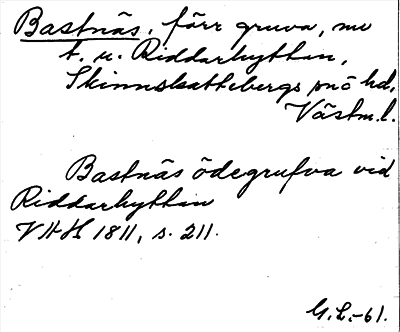 Bastnäs, förr gruva, nv
t. u. Riddarhyttan,
Skinnskattebergs snö hd,
Västm.l.
Bastnäs ödegrufva vid
Riddarhyttan
VAH 1811, s. 211.
G.L.-61.